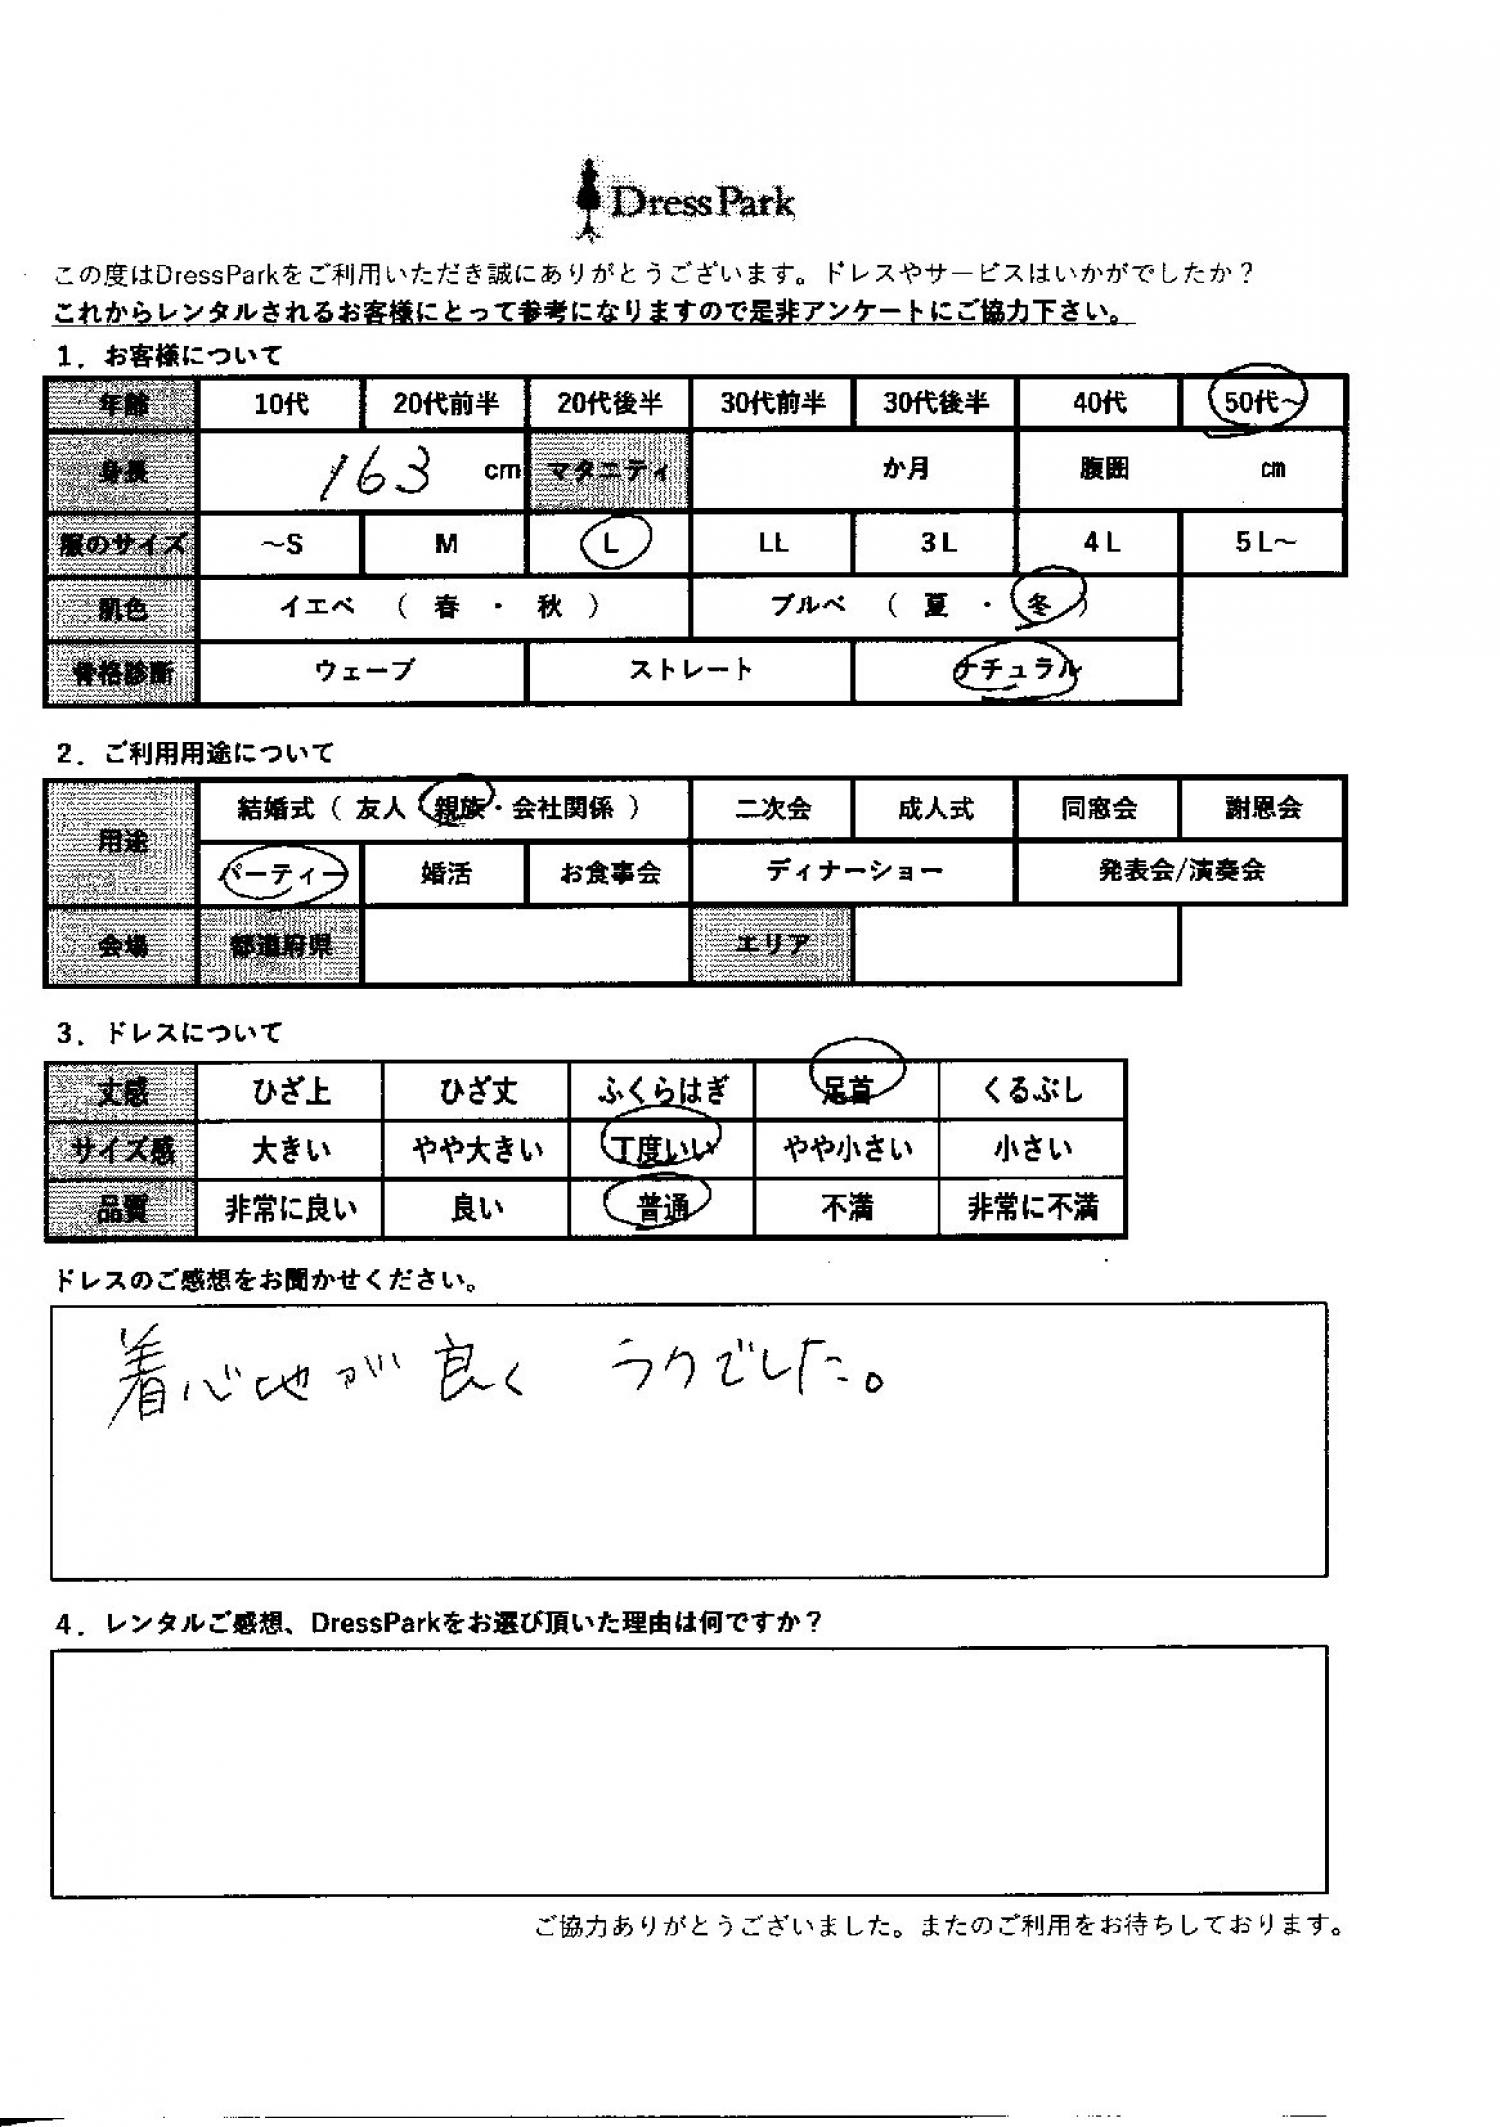 DressPark
この度はDressParkをご利用いただき誠にありがとうございます。ドレスやサービスはいかがでしたか？
これからレンタルされるお客様にとって参考になりますので是非アンケートにご協力下さい。
1．お客様について
年齢 10代 20代前半 20代後半 30代前半 30代後半 40代 50代～
身長 163 cm マタニティ か月 腹囲 ㎝
服のサイズ ～S M L LL 3L 4L 5L～
肌色 イエベ （ 春 ・ 秋 ） ブルベ （ 夏 ・ 冬 ）
骨格診断 ウェーブ ストレート ナチュラル
2．ご利用用途について
用途 結婚式（ 友人・親族・会社関係 ） 二次会 成人式 同窓会 謝恩会
パーティー 婚活 お食事会 ディナーショー 発表会/演奏会
会場 都道府県 エリア
3．ドレスについて
丈感 ひざ上 ひざ丈 ふくらはぎ 足首 くるぶし
サイズ感 大きい やや大きい 丁度いい やや小さい 小さい
品質 非常に良い 良い 普通 不満 非常に不満
ドレスのご感想をお聞かせください。
着心地が良く ラクでした。
4．レンタルご感想、DressParkをお選び頂いた理由は何ですか？
ご協力ありがとうございました。またのご利用をお待ちしております。